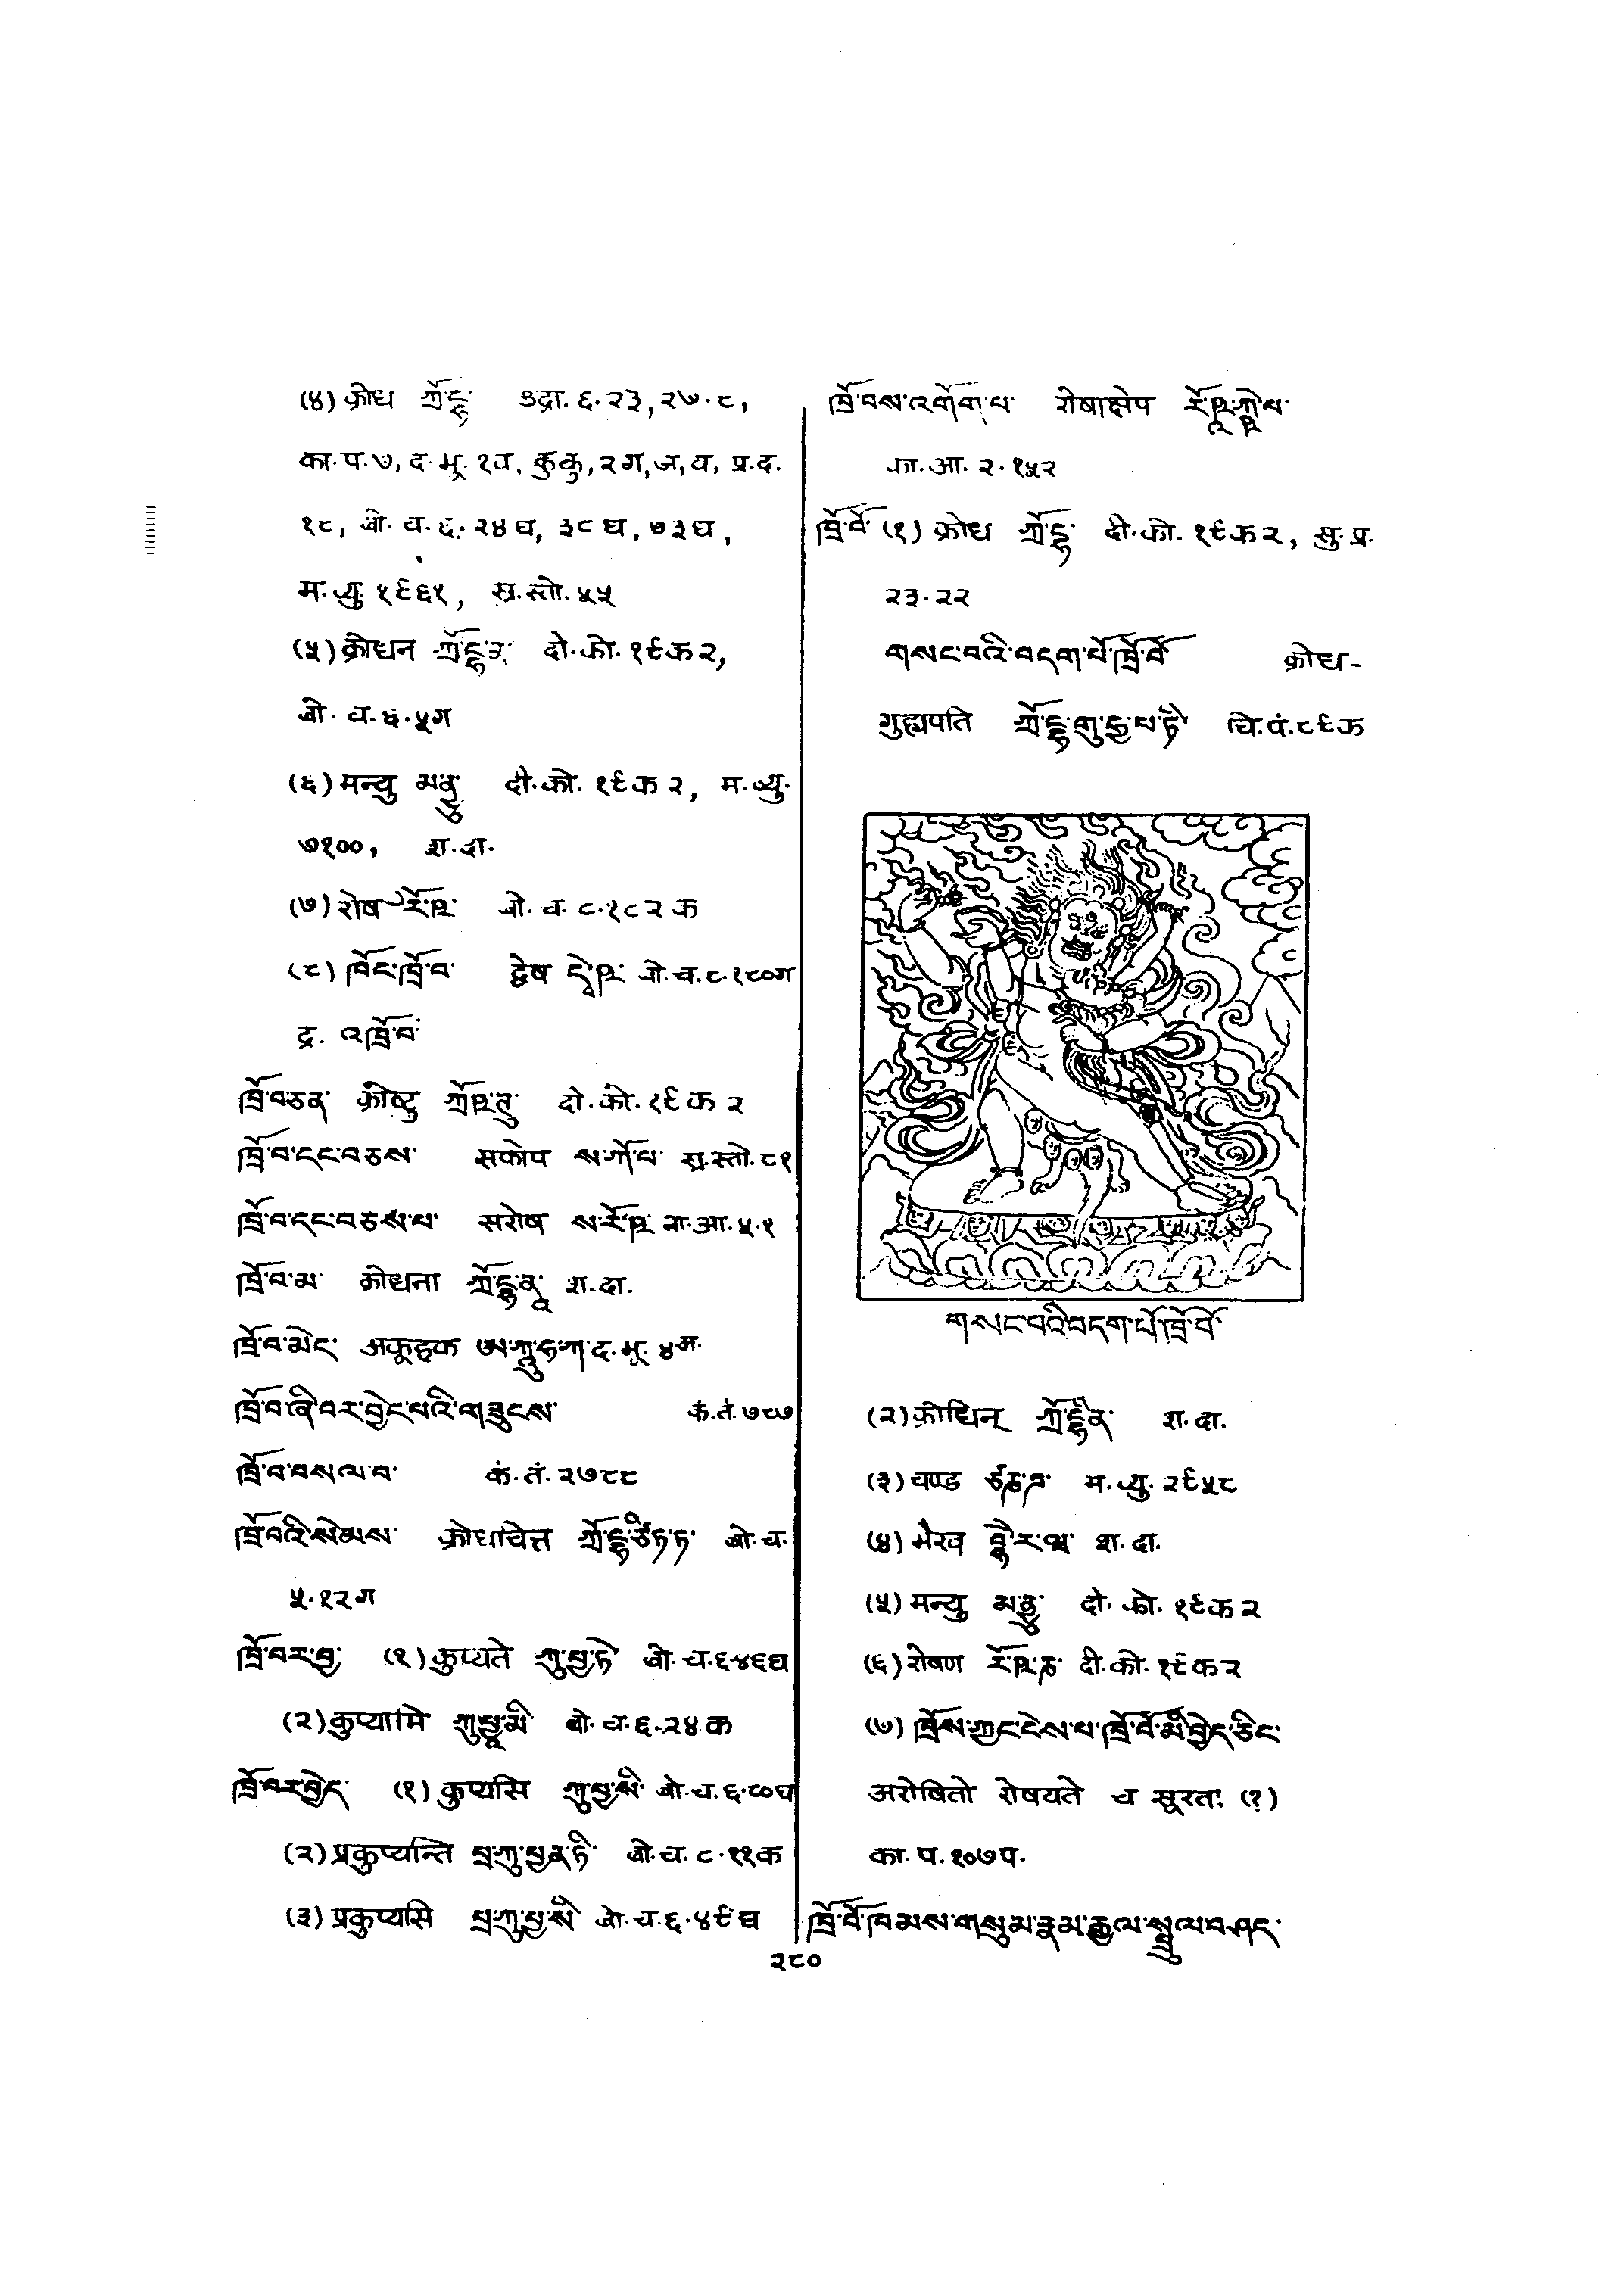 (४) क्रोध ཀྲོ་དྷ་ उद्रा. ६.२३, २७.८,
का.प.७, द.भू. १च, कुकु, २ग, ज, च, प्र.द.
१८, बो. च. ६. २४घ, ३८घ, ७३घ,
म.व्यु. १९६१, स्र.स्तो. ५५
(५) क्रोधन ཀྲོ་དྷ་ན་ दी.को. १९क२,
बो. च. ६.५ग
(६) मन्यु མནྱུ་ दी.को. १९क२, म.व्यु.
७१००, श.दा.
(७) रोष རོ་ཥ་ बो. च. ८.१८२क
(८) ཁོང་ཁྲོ་བ་ द्वेष དྭེ་ཥ་ बो.च.८.१८०ग
द्र. འཁྲོ་བ་
ཁྲོ་བཅན་ क्रोष्टु ཀྲོ་ཥ་ཊུ་ दी.को. १९क२
ཁྲོ་བ་དང་བཅས་ सकोप ས་ཀོ་པ་ स्र.स्तो. ८१
ཁྲོ་བ་དང་བཅས་པ་ सरोष ས་རོ་ཥ་ का.आ. ५.१
ཁྲོ་བ་མ་ क्रोधना ཀྲོ་དྷ་ནཱ་ श.दा.
ཁྲོ་བ་མེད་ अकूहक ཨ་ཀཱུ་ཧ་ཀ་ द.भू. ४म
ཁྲོ་བ་ཞི་བར་བྱེད་པའི་གཟུངས་ कं.तं.७८७
ཁྲོ་བ་བསལ་བ་ कं.तं. २७८८
ཁྲོ་བའི་སེམས་ क्रोधचित्त ཀྲོ་དྷ་ཙིཏ་ཏ་ बो.च.
५.१२ग
ཁྲོ་བར་བྱ་ (१) कुप्यते ཀུ་པྱ་ཏེ་ बो.च.६.४६घ
(२) कुप्यामि ཀུ་པྱཱ་མི་ बो.च.६.२४क
ཁྲོ་བར་བྱེད་ (१) कुप्यसि ཀུ་པྱ་སི་ बो.च.६.८०घ
(२) प्रकुप्यन्ति པྲ་ཀུ་པྱན་ཏི་ बो.च. ८.११क
(३) प्रकुप्यसि པྲ་ཀུ་པྱ་སི་ बो.च.६.४९घ
ཁྲོ་བས་འགོག་པ་ रोषाक्षेप རོ་ཥཱ་ཀྵེ་པ་
का.आ. २.१५२
ཁྲོ་བོ་ (१) क्रोध ཀྲོ་དྷ་ दी.को. १९क२, सु.प्र.
२३.२२
གསང་བའི་བདག་པོ་ཁྲོ་བོ་ क्रोध-
गुह्यपति ཀྲོ་དྷ་གུ་ཧྱ་པ་ཏི་ चि.पं.८९क
གསང་བའི་བདག་པོ་ཁྲོ་བོ་
(२) क्रोधिन् ཀྲོ་དྷིན་ श.दा.
(३) चण्ड ཙཎ་ཌ་ म.व्यु. २९५८
(४) भैरव བྷཻ་ར་ཝ་ श.दा.
(५) मन्यु མནྱུ་ दी.को. १९क२
(६) रोषण རོ་ཥ་ཎ་ दी.को. १९क२
(७) ཁྲོས་ཀྱང་ངེས་པ་ཁྲོ་བོ་མི་བྱེད་ཅིང་
अरोषितो रोषयते च सूरतः (?)
का.प. १०७प.
ཁྲོ་བོ་ཁམས་གསུམ་རྣམ་རྒྱལ་སྤྲུལ་བ་ཤད་
२८०